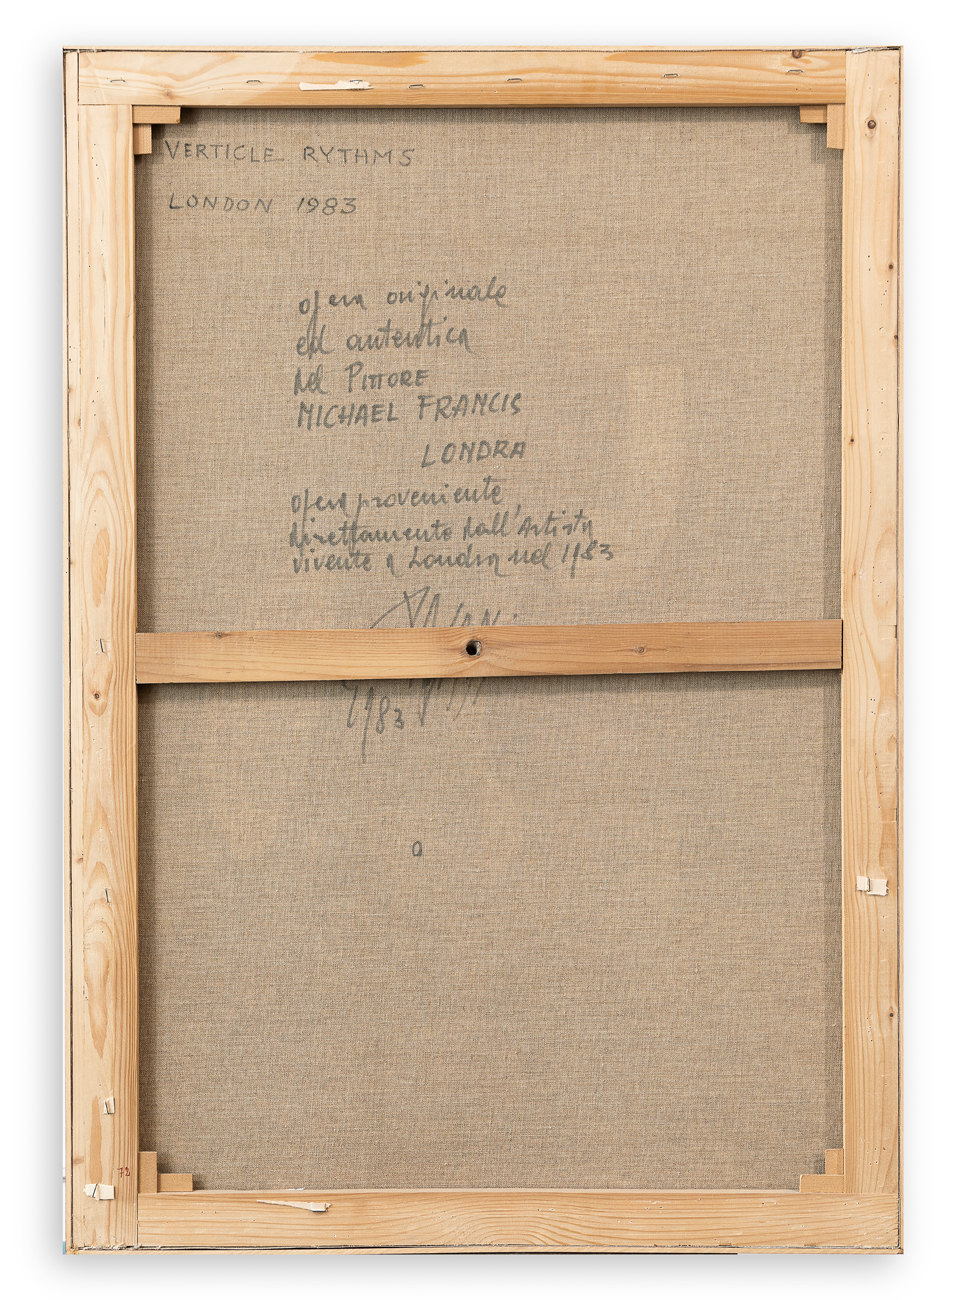 VERTICLE RYTHMS
LONDON 1983
opera originale
ed autentica
del PITTORE
MICHAEL FRANCIS
LONDRA
opera proveniente
direttamente dall'Artista
vivente a Londra nel 1983
1983
72